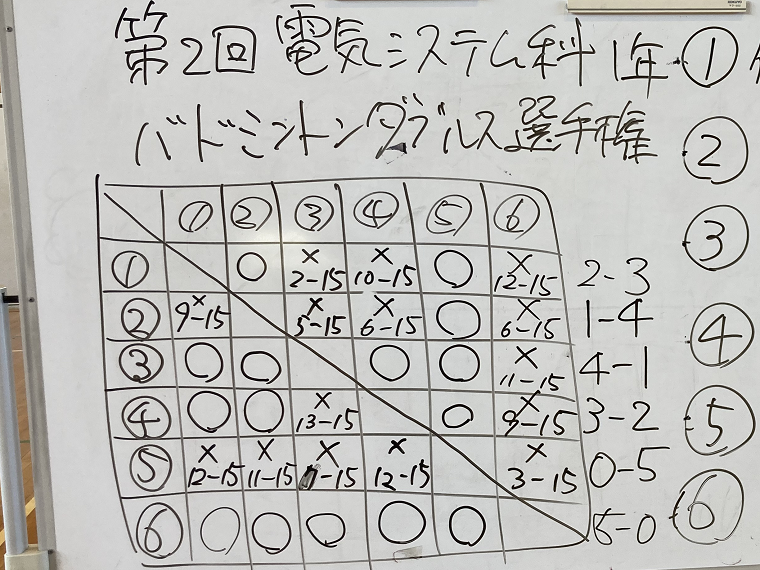 第2回 電気システム科 1年 ①
バドミントンダブルス選手権
②
① ② ③ ④ ⑤ ⑥
③
① ○ × 2-15 × 10-15 ○ × 12-15 2-3
② × 9-15 × 5-15 × 6-15 ○ × 6-15 1-4
④
③ ○ ○ ○ ○ × 11-15 4-1
④ ○ ○ × 13-15 ○ × 9-15 3-2
⑤
⑤ × 12-15 × 11-15 × × 12-15 × 3-15 0-5
⑥ ○ ○ ○ ○ ○ 5-0
⑥